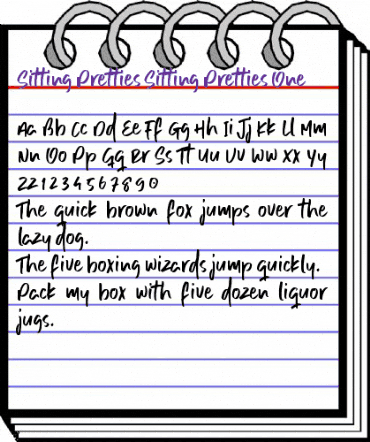 Sitting Pretties Sitting Pretties One
Aa Bb Cc Dd Ee Ff Gg Hh Ii Jj Kk Ll Mm
Nn Oo Pp Qq Rr Ss Tt Uu Vv Ww Xx Yy
Zz 1 2 3 4 5 6 7 8 9 0
The quick brown fox jumps over the
lazy dog.
The five boxing wizards jump quickly.
Pack my box with five dozen liquor
jugs.